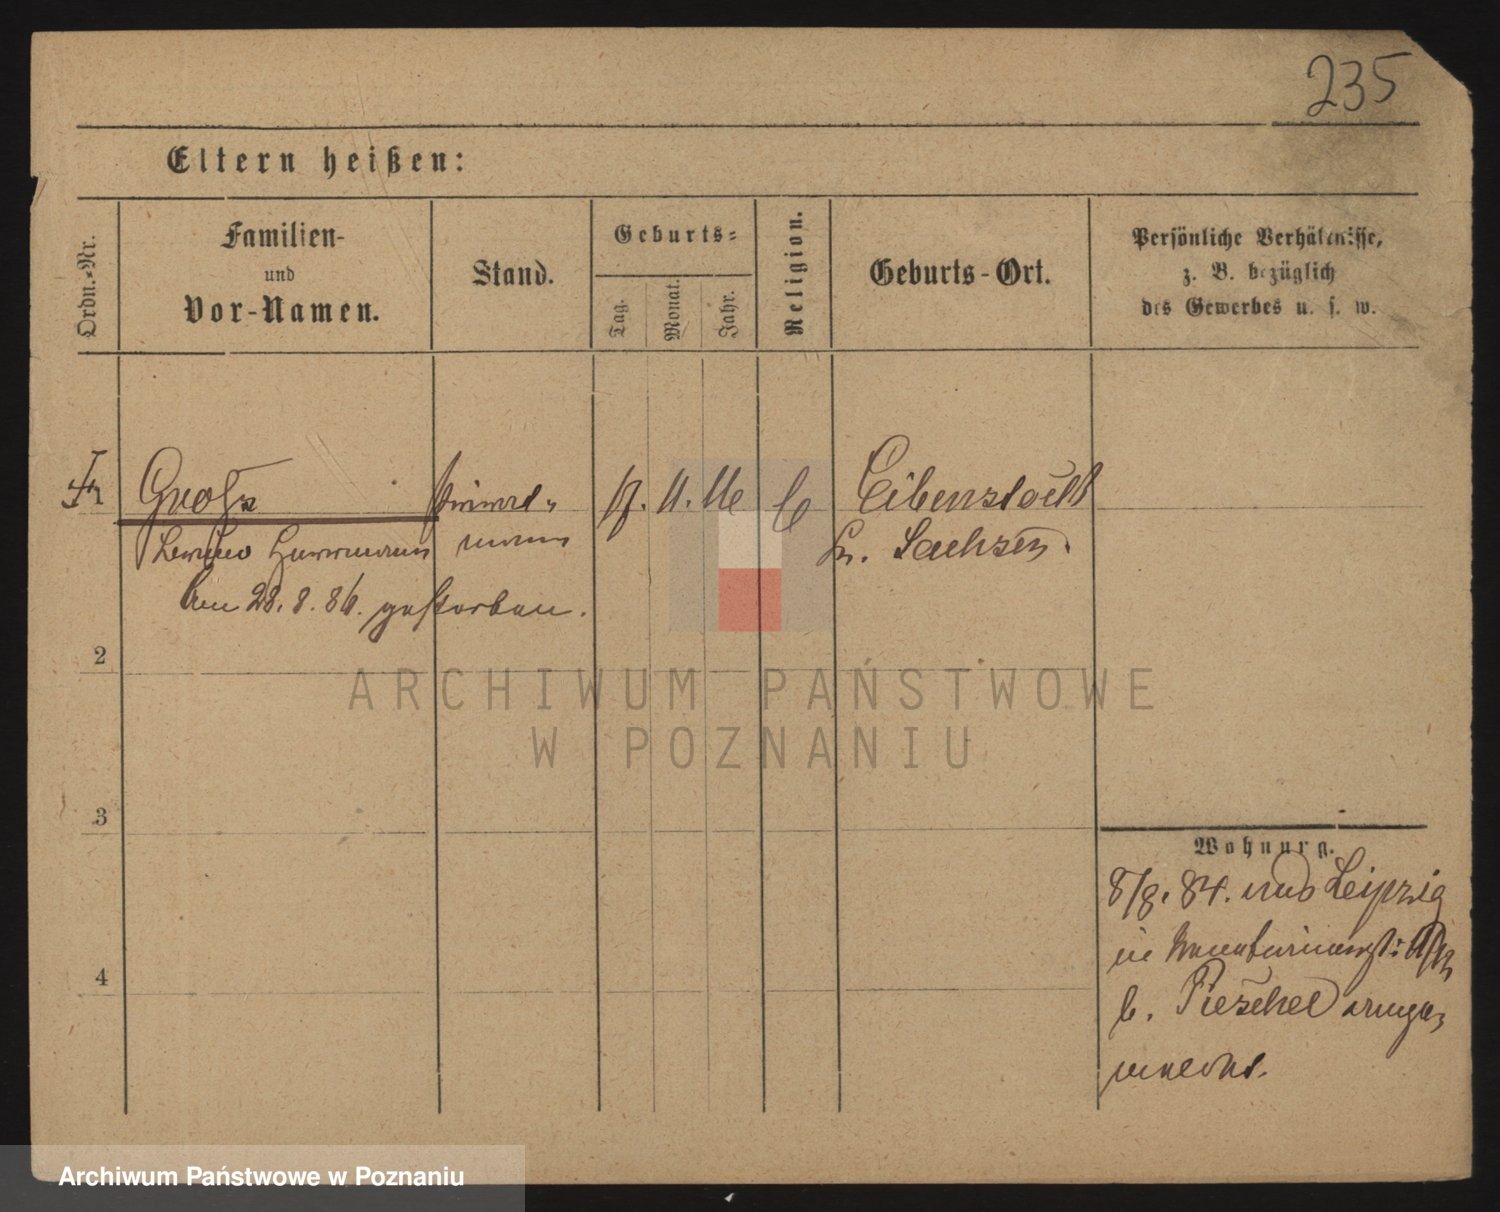 235
Eltern heißen:
Ordn.-Nr.
Familien-
und
Vor-Namen.
Stand.
Geburts-
Tag.
Monat.
Jahr.
Religion.
Geburts-Ort.
Persönliche Verhältnisse,
z. B. bezüglich
des Gewerbes u. s. w.
Groß
Hermann
am 28. 8. 86. gestorben.
11.
Eibenstock
in Sachsen.
2
3
4
Wohnung.
8/8. 84. aus Leipzig
in
b. Pieschel ange-
meldet.
ARCHIWUM PAŃSTWOWE
W POZNANIU
Archiwum Państwowe w Poznaniu